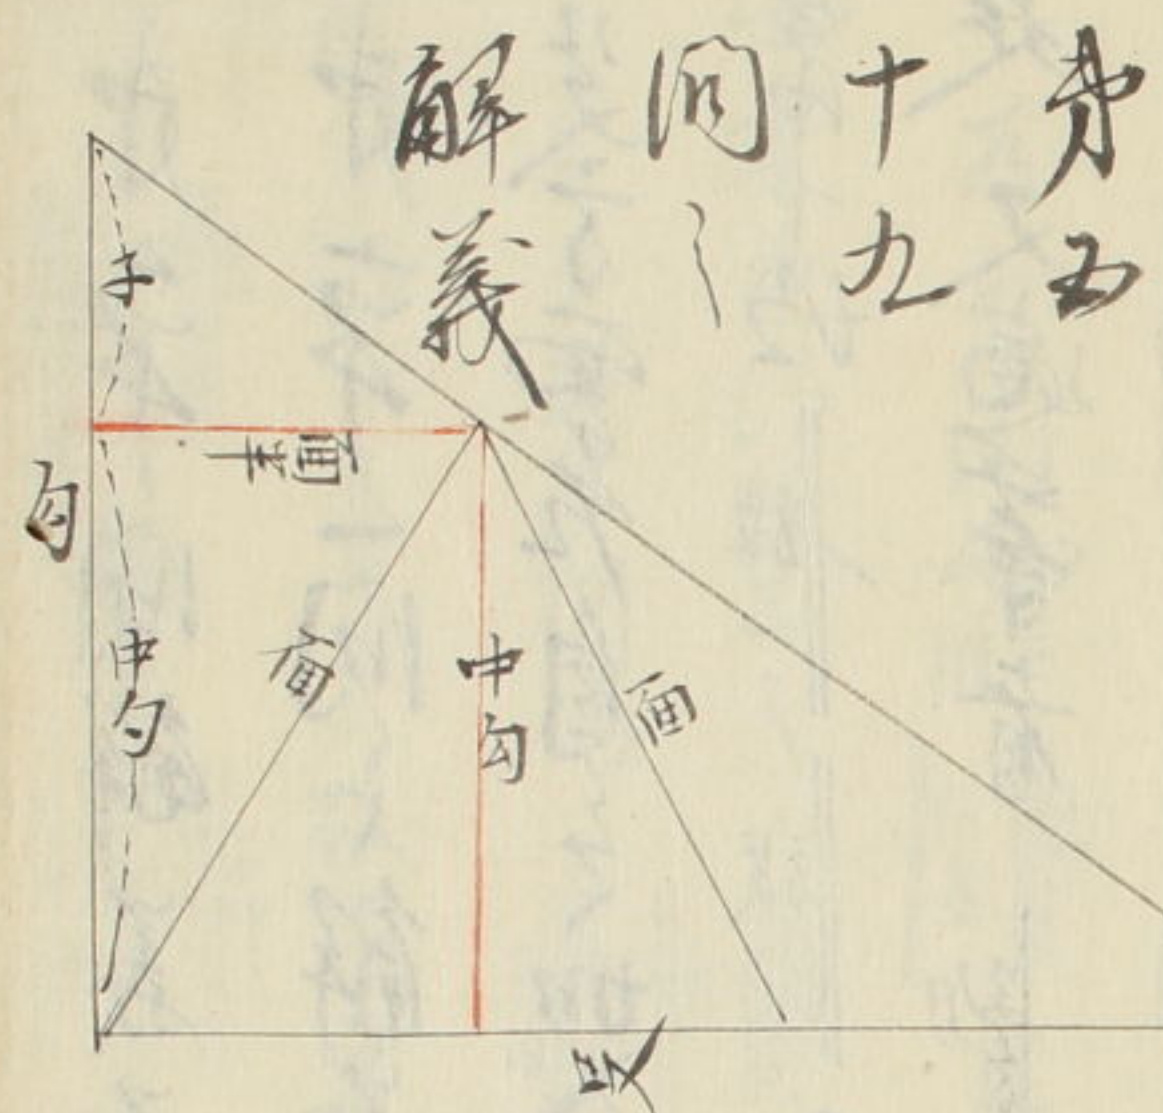 第五
十九
問之
解義
子
面半
勾
中勾
面
中勾
面
股